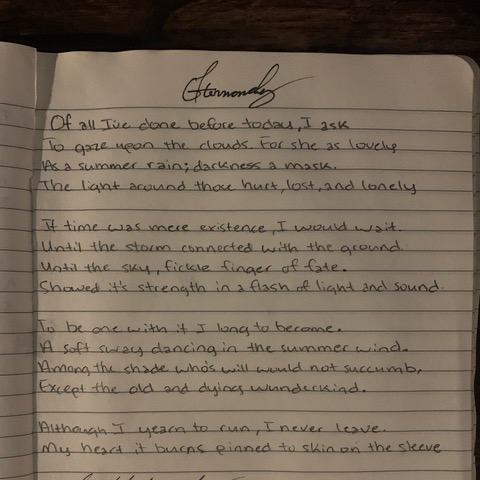 Hernandez
Of all I've done before today, I ask
To gaze upon the clouds. For she as lovely
As a summer rain; darkness a mask.
The light around those hurt, lost, and lonely
If time was mere existence, I would wait.
Until the storm connected with the ground.
Until the sky, fickle finger of fate.
Showed it's strength in a flash of light and sound.
To be one with it I long to become.
A soft sway dancing in the summer wind.
Among the shade who's will would not succumb,
Except the old and dying wunderkind.
Although I yearn to run, I never leave.
My heart it burns pinned to skin on the sleeve